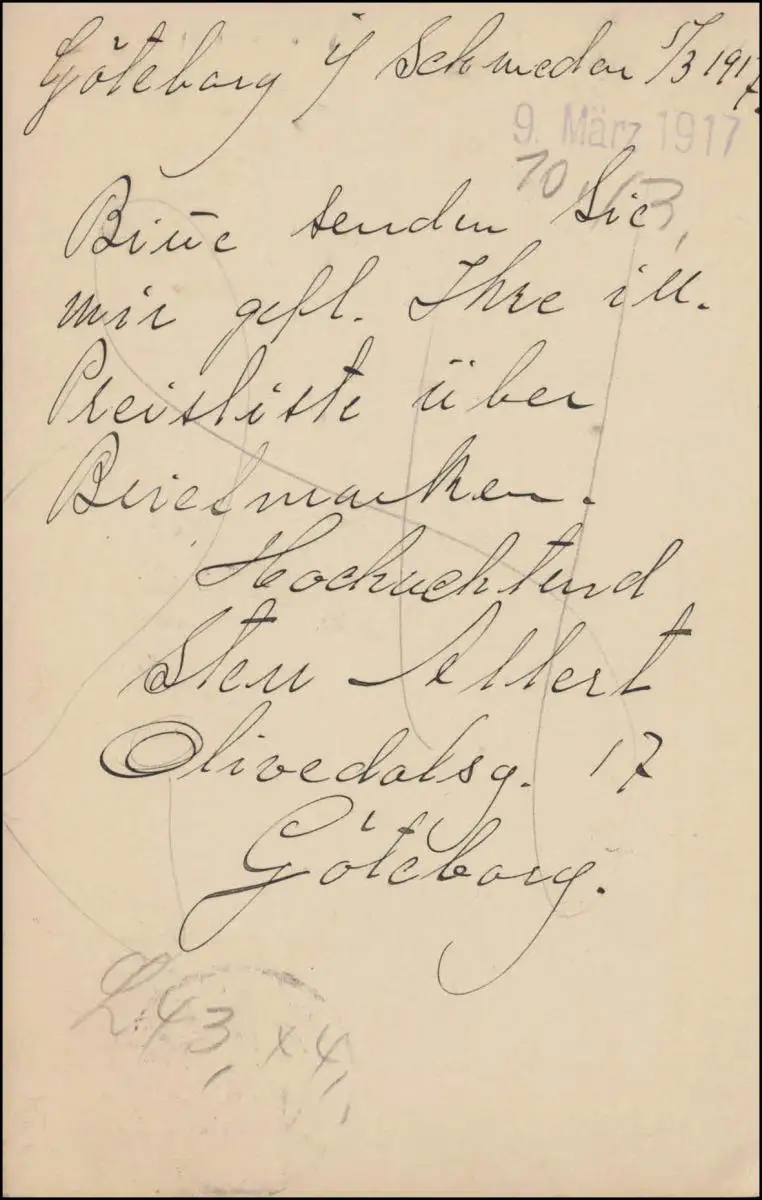 Göteborg i/ Schweden 5/3 1917.
9. März 1917
10./3,
Bitte senden Sie
mir gefl. Ihre ill.
Preisliste über
Briefmarken.
Hochachtend
Sten Allert
Olivedalsg. 17
Göteborg.
L 43, x 4,